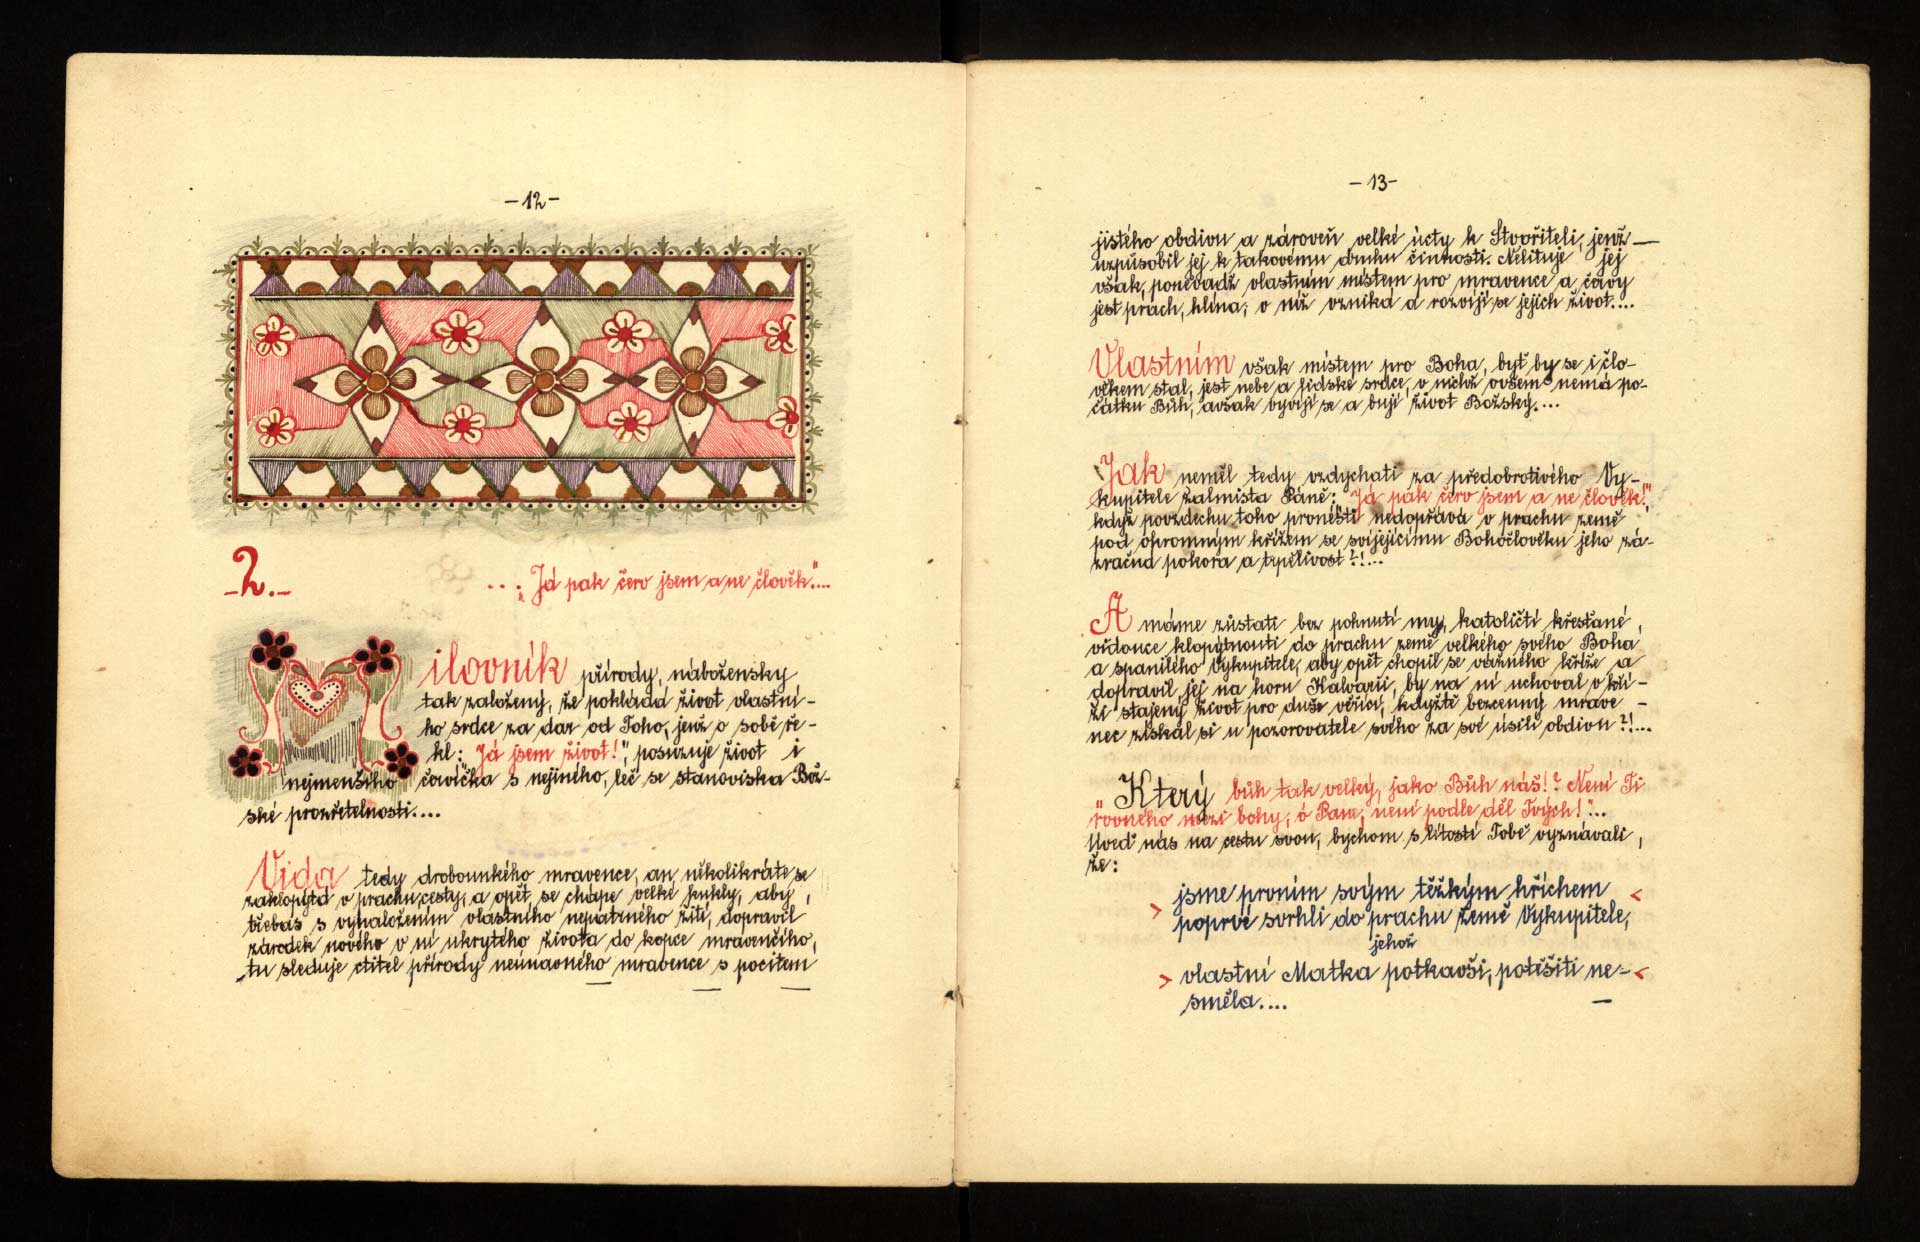 -12-
-2.-
... „Já pak červ jsem a ne člověk."...
Milovník přírody, nábožensky
tak založený, že pokládá život vlastní-
ho srdce za dar od Toho, jenž o sobě ře-
kl: „Já jsem život!", posuzuje život i
nejmenšího červíčka s nejiného, leč se stanoviska Bož-
ské prozřetelnosti....
Vida tedy drobounkého mravence, an několikráte se
zaklopýtá v prachu cesty, a opět se chápe velké kukly, aby,
třebas s vynaložením vlastního nepatrného žití, dopravil
zárodek nového v ní ukrytého života do kopce mravenčího,
tu sleduje ctitel přírody neúnavného mravence s pocitem
-13-
jistého obdivu a zároveň velké úcty k Stvořiteli, jenž
uzpůsobil jej k takovému druhu činnosti. Nelituje jej
však, poněvadž vlastním místem pro mravence a červy
jest prach, hlína, v níž vzniká a rozvíjí se jejich život....
Vlastním však místem pro Boha, byť by se i člo-
věkem stal, jest nebe a lidské srdce, v nichž ovšem nemá po-
čátku Bůh, avšak vyvíjí se a bují život Božský....
Jak neměl tedy vzdychati za předobrotivého Vy-
kupitele žalmista Páně: „Já pak červ jsem a ne člověk!",
když povzdechu toho pronésti nedopřává v prachu země
pod ohromným křížem se svíjejícímu Bohočlověku jeho zá-
zračná pokora a trpělivost?!...
A máme zůstati bez pohnutí my, katoličtí křesťané,
vidouce klopýtnouti do prachu země velkého svého Boha
a spanilého Vykupitele, aby opět chopil se věčného kříže a
dopravil jej na horu Kalvarii, by na ní uchoval v kří-
ži stajený život pro duše věřící, když i bezcenný mrave-
nec získal si u pozorovatele svého za své úsilí obdivu?!...
„Který bůh tak velký, jako Bůh náš!? Není Ti
rovného mezi bohy, ó Pane, není podle děl Tvých!"...
Uveď nás na cestu svou, bychom s lítostí Tobě vyznávali,
že:
> jsme prvním svým těžkým hříchem <
poprvé svrhli do prachu země Vykupitele,
jehož
> vlastní Matka potkavši, potěšiti ne- <
směla....